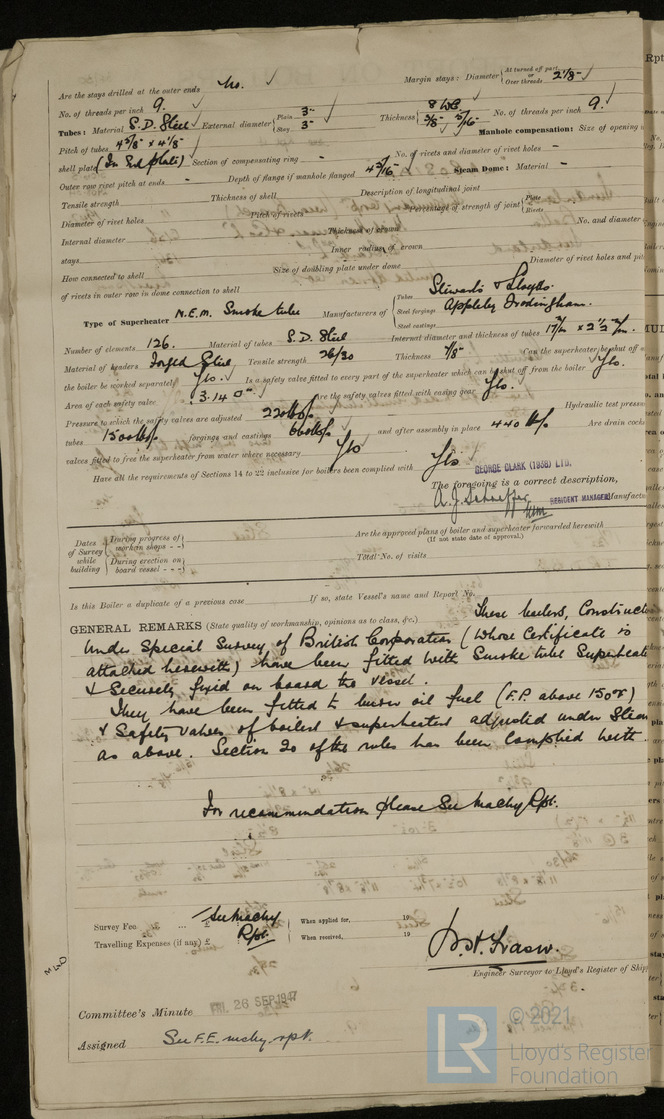 Are the stays drilled at the outer ends No. Margin stays: Diameter { At turned off part or Over threads 2 1/8"
No. of threads per inch 9.
Tubes: Material S.D. Steel External diameter { Plain 3" Stay 3" Thickness { 8 WG 3/8" 5/16" No. of threads per inch 9.
Pitch of tubes 4 3/8" x 4 1/8" Manhole compensation: Size of opening
shell plate (In End plate) Section of compensating ring - No. of rivets and diameter of rivet holes -
Outer row rivet pitch at ends - Depth of flange if manhole flanged 4 3/16" Steam Dome: Material -
Tensile strength Thickness of shell Description of longitudinal joint
Diameter of rivet holes Pitch of rivets Percentage of strength of joint { Plate Rivets
Internal diameter Thickness of crown No. and diameter
stays Inner radius of crown
How connected to shell Size of doubling plate under dome Diameter of rivet holes and
of rivets in outer row in dome connection to shell
Type of Superheater N.E.M. Smoke tube Manufacturers of { Tubes Stewarts & Lloyds Steel forgings Appleby Frodingham. Steel castings
Number of elements 126. Material of tubes S.D. Steel Internal diameter and thickness of tubes 17 m/m x 2 1/2 m/m.
Material of headers Forged Steel Tensile strength 26/30 Thickness 7/8" Can the superheater be shut off
the boiler be worked separately Yes. Is a safety valve fitted to every part of the superheater which can be shut off from the boiler Yes.
Area of each safety valve 3.14 □" Are the safety valves fitted with easing gear Yes.
Pressure to which the safety valves are adjusted 220 lbs/□" Hydraulic test pressure
tubes 1500 lbs/□" forgings and castings 660 lbs/□" and after assembly in place 440 lbs/□" Are drain cocks
valves fitted to free the superheater from water where necessary Yes
Have all the requirements of Sections 14 to 22 inclusive for boilers been complied with Yes
GEORGE CLARK (1938) LTD.
The foregoing is a correct description,
RESIDENT MANAGER Manufactu
Dates of Survey while building { During progress of work in shops - - During erection on board vessel - - -
Are the approved plans of boiler and superheater forwarded herewith
(If not state date of approval.)
Total No. of visits
Is this Boiler a duplicate of a previous case If so, state Vessel's name and Report No.
GENERAL REMARKS (State quality of workmanship, opinions as to class, &c.) These boilers, Constructe
under Special Survey of British Corporation (Whose Certificate is
attached herewith) have been fitted with Smoke tube Superheate
& Securely fixed on board the vessel.
They have been fitted to burn oil fuel (F.P. above 150°F)
& Safety Valves of boilers & superheaters adjusted under Steam
as above. Section 20 of the rules has been Complied with.
For recommendation please See Machy Rpt.
Survey Fee ... £ See Machy When applied for, 19
Travelling Expenses (if any) £ Rpt. When received, 19
Engineer Surveyor to Lloyd's Register of Ship
Committee's Minute FRI. 26 SEP 1947
Assigned See F.E. mchy. rpt.
LR © 2021
Lloyd's Register
Foundation